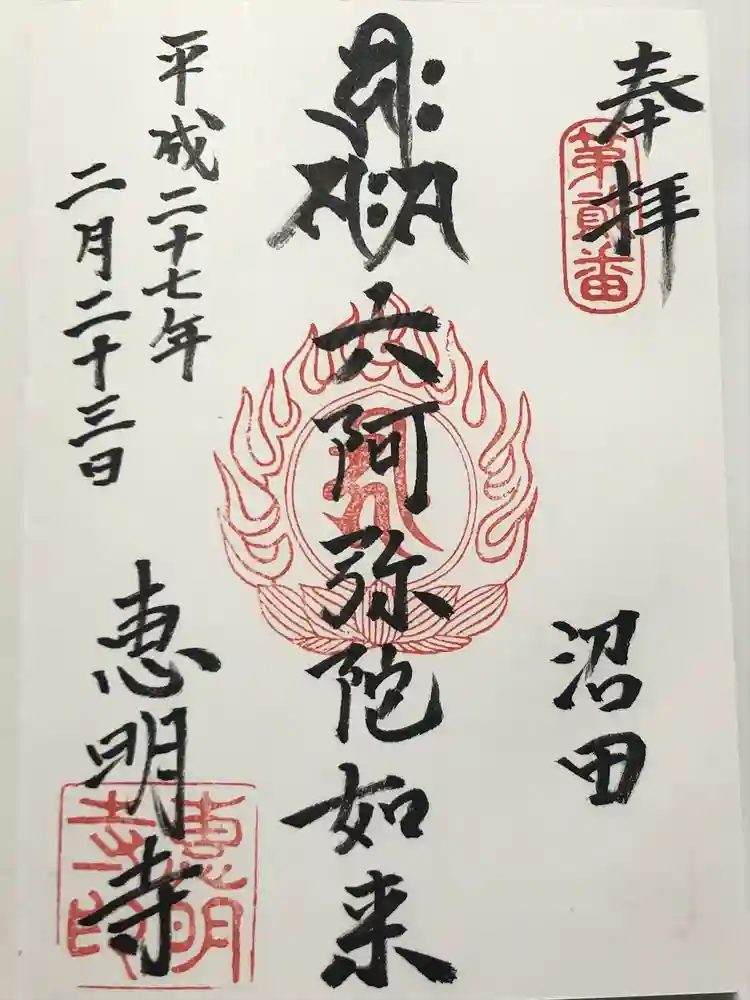 奉拝
第貳番
沼田
六阿弥陀如来
平成二十七年
二月二十三日
恵明寺
恵明
寺印